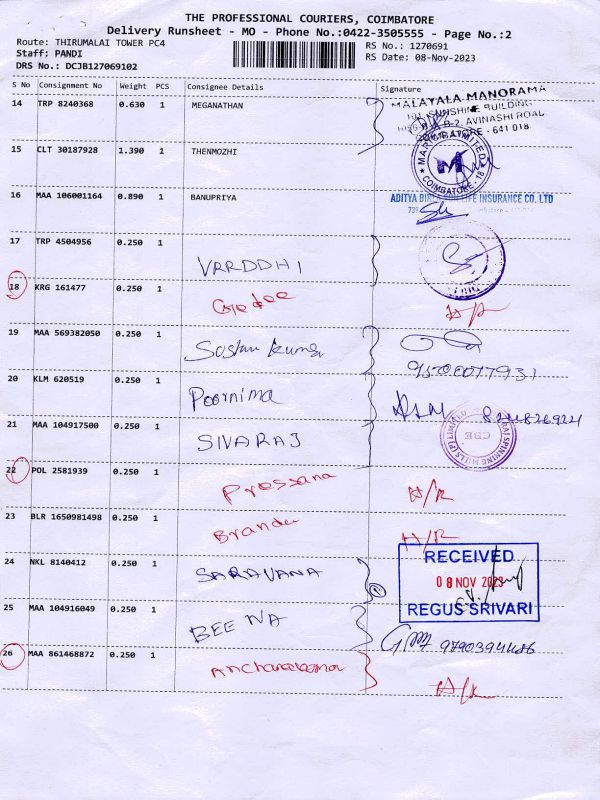 THE PROFESSIONAL COURIERS, COIMBATORE
Delivery Runsheet - MO - Phone No.:0422-3505555 - Page No.:2
Route: THIRUMALAI TOWER PC4
RS No.: 1270691
Staff: PANDI
RS Date: 08-Nov-2023
DRS No.: DCJB127069102
S No Consignment No Weight PCS Consignee Details Signature
14 TRP 8240368 0.630 1 MEGANATHAN
MALAYALA MANORAMA
SUNSHINE BUILDING
AVINASHI ROAD
COIMBATORE - 641 018
15 CLT 30187928 1.390 1 THENMOZHI
LIMITED
COIMBATORE - 18
16 MAA 106001164 0.890 1 BANUPRIYA
ADITYA BIRLA SUN LIFE INSURANCE CO. LTD
17 TRP 4504956 0.250 1 VARDDHI
18 KRG 161477 0.250 1
19 MAA 569382050 0.250 1
9500077931
20 KLM 620519 0.250 1 Poornima
21 MAA 104917500 0.250 1 SIVARAJ
SPINNING MILLS (P) LIMITED
CBE
22 POL 2581939 0.250 1 Pressana H/R
23 BLR 1650981498 0.250 1 H/R
24 NKL 8140412 0.250 1 SARAVANA
RECEIVED
08 NOV 2023
REGUS SRIVARI
25 MAA 104916049 0.250 1 BEENA
26 MAA 861468872 0.250 1